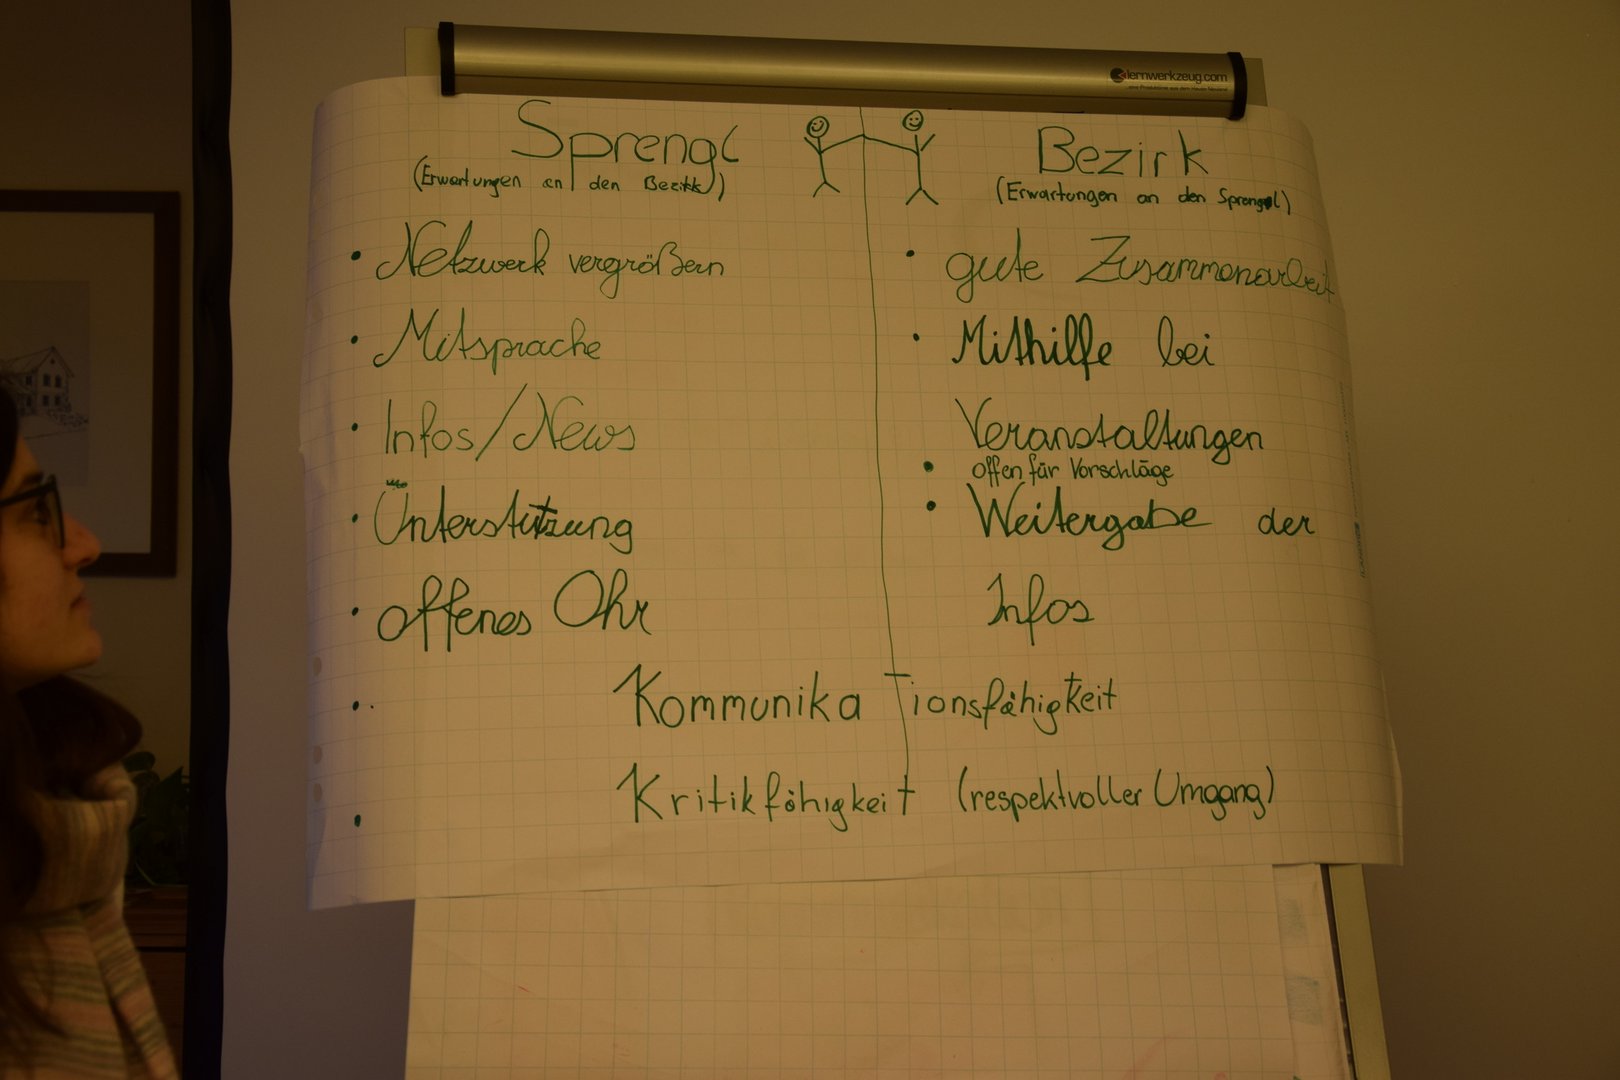 lernwerkzeug.com
Sprengl
(Erwartungen an den Bezirk)
• Netzwerk vergrößern
• Mitsprache
• Infos/News
• Unterstützung
• offenes Ohr
Bezirk
(Erwartungen an den Sprengel)
• gute Zusammenarbeit
• Mithilfe bei
Veranstaltungen
• offen für Vorschläge
• Weitergabe der
Infos
• Kommunikationsfähigkeit
• Kritikfähigkeit (respektvoller Umgang)